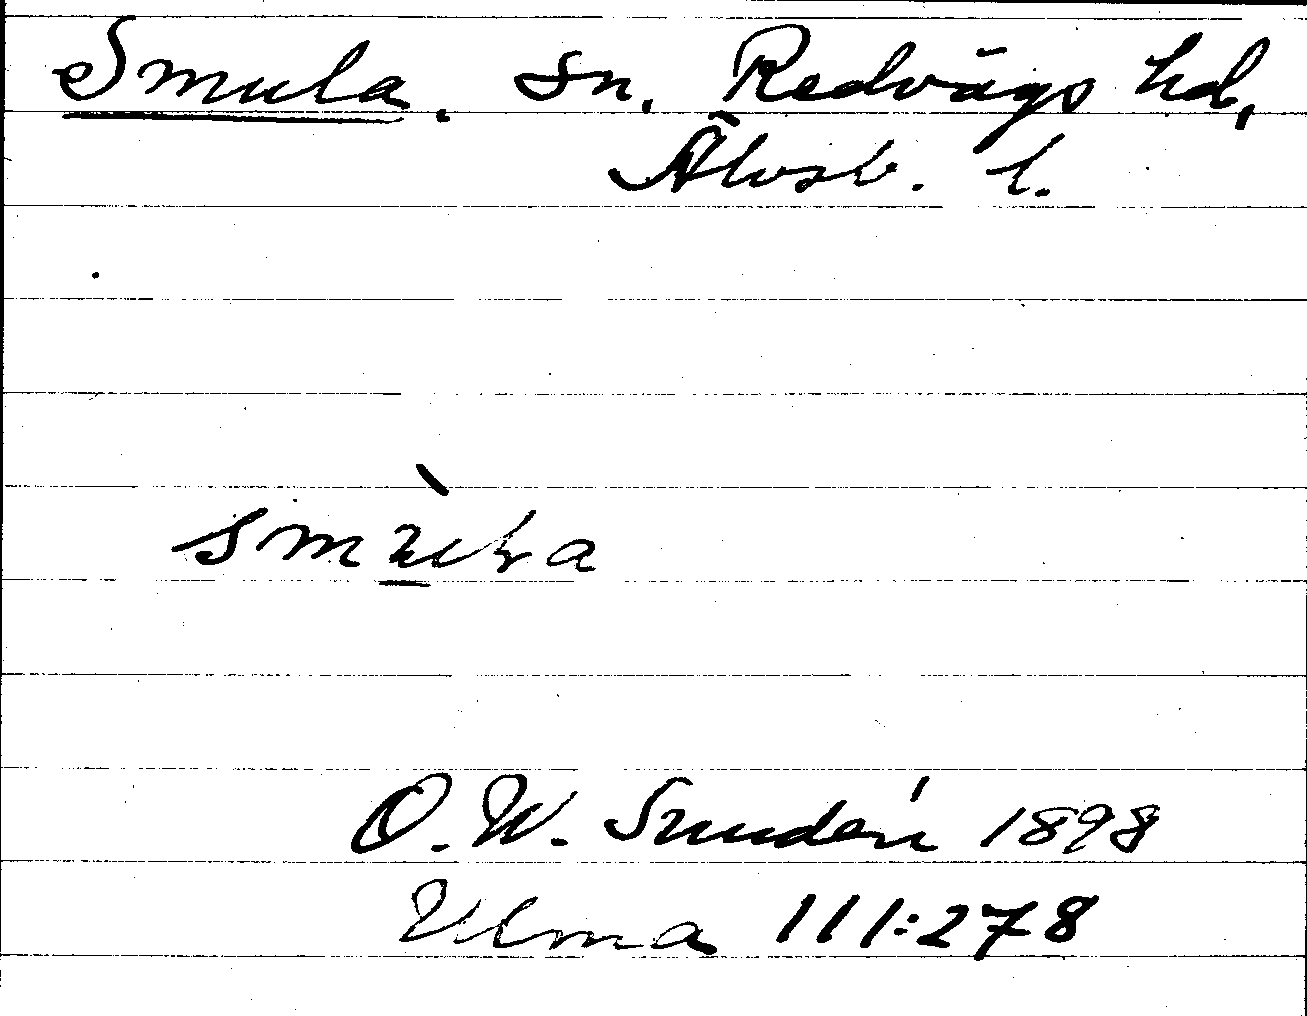 Smula. Sn. Redvägs hd,
Älvsb. l.
O. W. Sundén 1898
Ulma 111:278